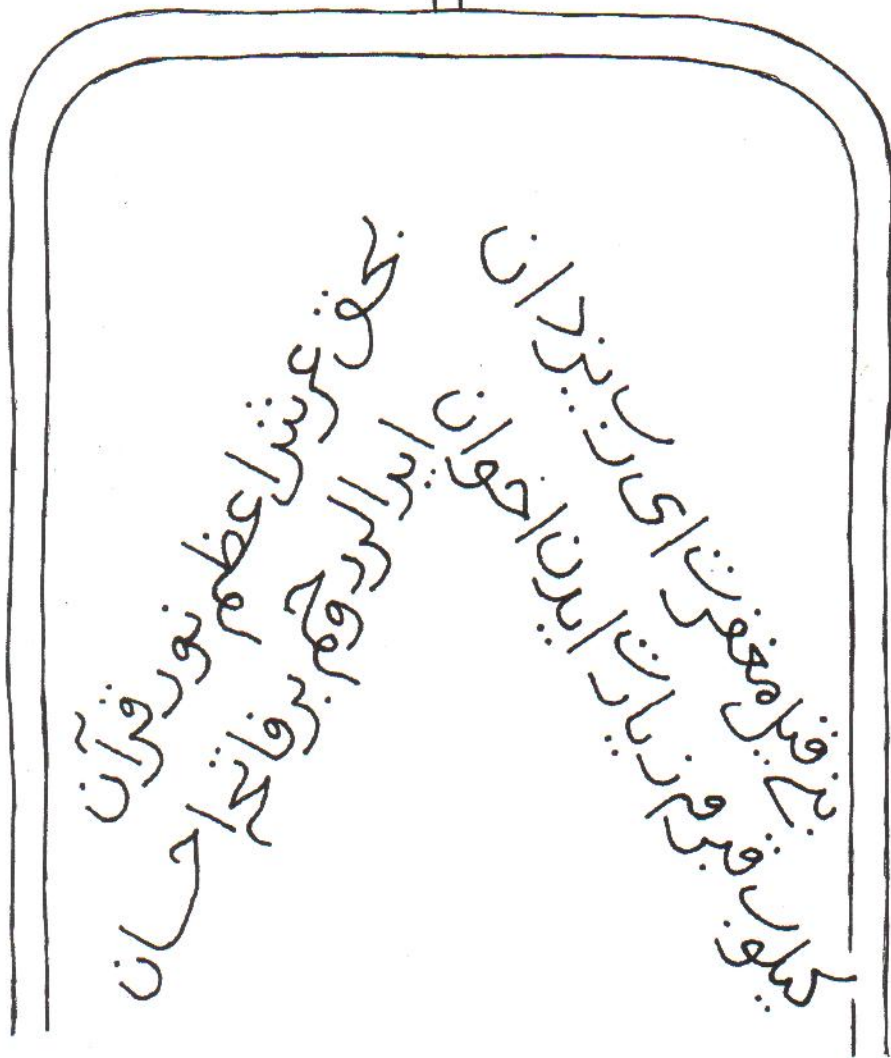 بنی قیل مغفرت ای رب یزدان
بحق عرش اعظم نور قرآن
کیلوب قبرم زیارت ایدن اخوان
ایدالر روحم بر فاتح احسان